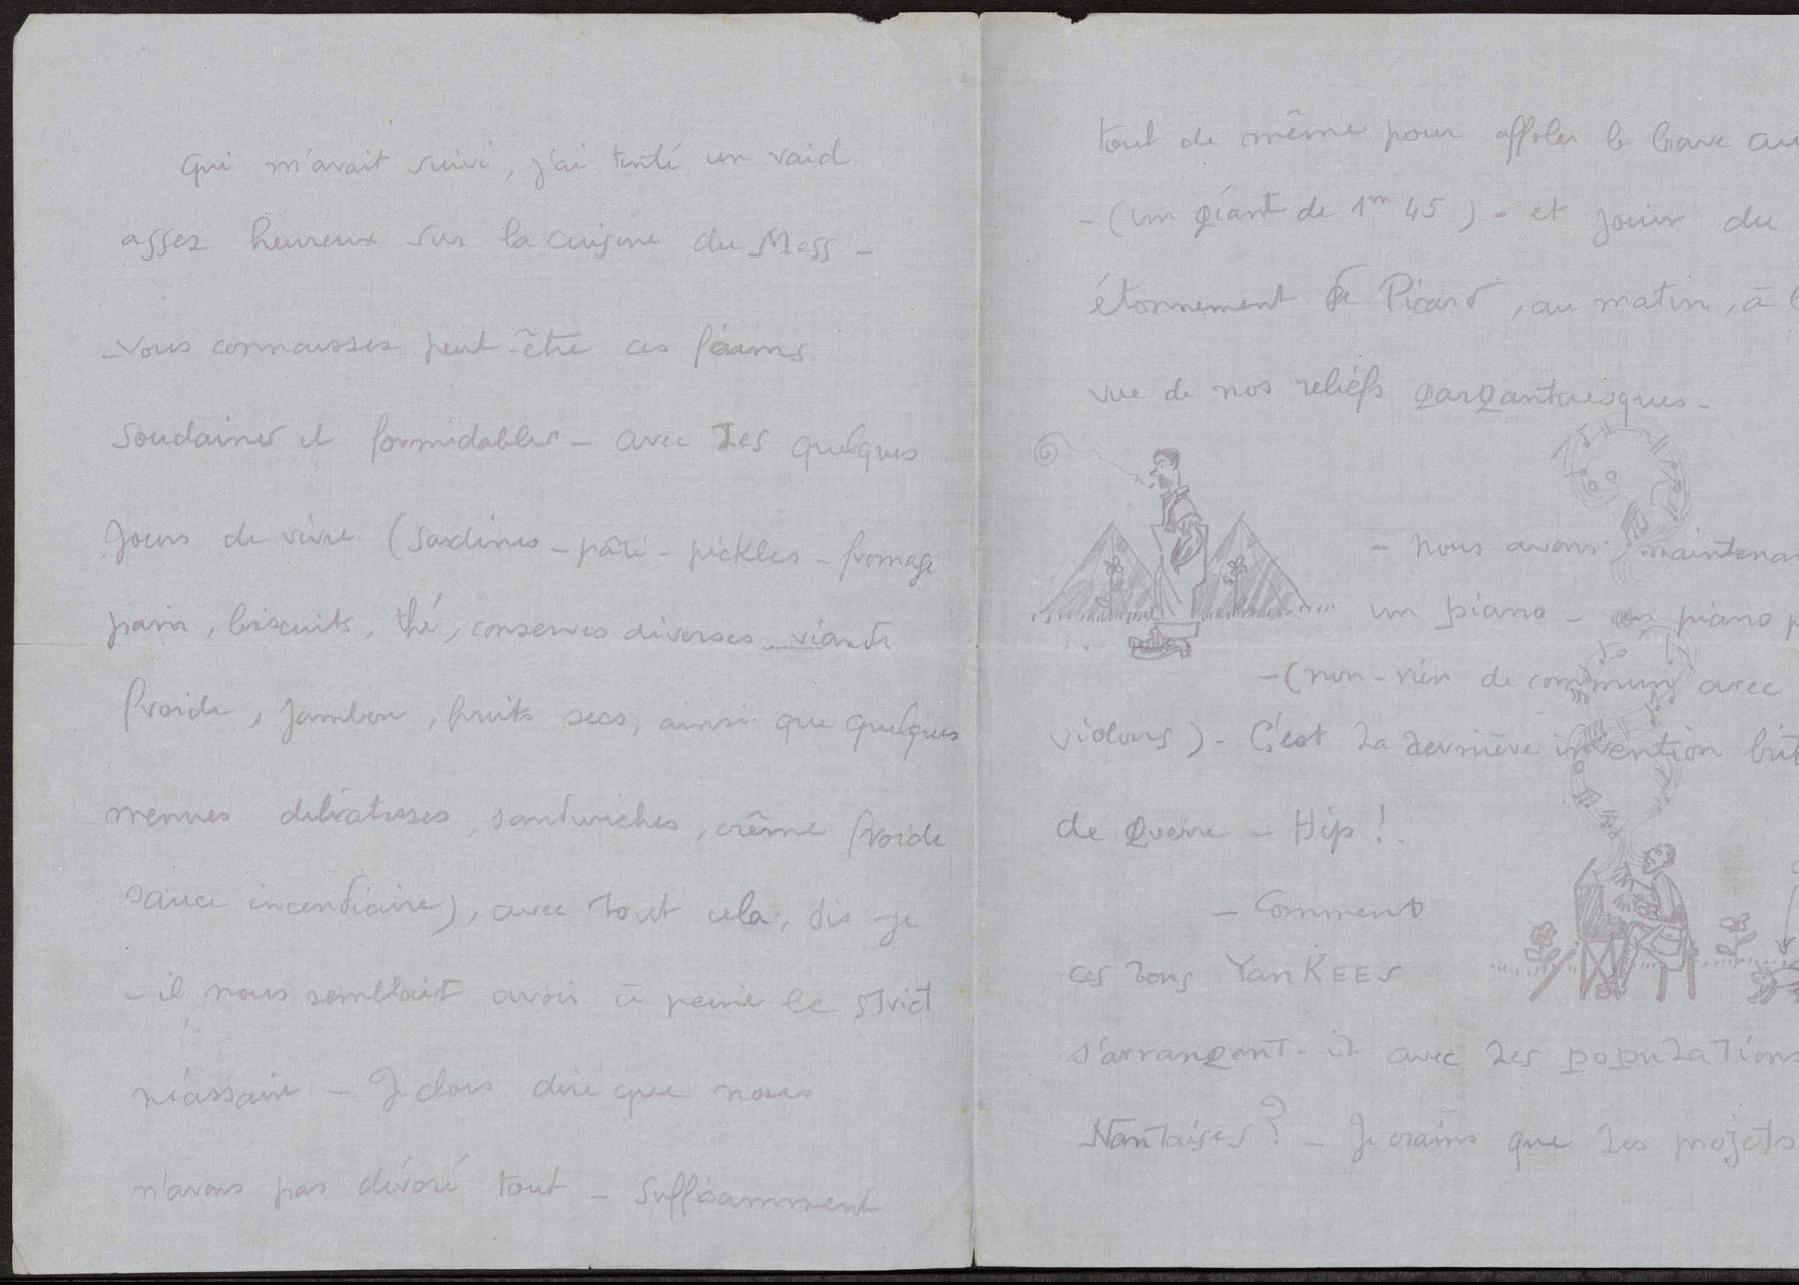 qui m'avait suivi, j'ai tenté un raid
assez heureux sur la cuisine du Mess -
- vous connaissez peut-être ces faims
soudaines et formidables - avec les quelques
jours de vivre (sardines - pâté - pickles - fromage
pain, biscuits, thé, conserves diverses, viande
froide, jambon, fruits secs, ainsi que quelques
menues délicatesses, sandwiches, crême froide
sauce incendiaire), avec tout cela, dis-je
- il nous semblait avoir à peine le strict
nécessaire - Je dois dire que nous
n'avons pas dévoré tout - suffisamment
tout de même pour affoler le brave
- (un géant de 1m 45) - et jouir du
étonnement de Picard, au matin, à
vue de nos reliefs gargantuesques -
- nous avons maintenan
un piano - un piano
- (non - rien de commun avec
violons) - C'est la dernière invention
de guerre - Hip !
- Comment
ces bons YanKEEs
s'arrangent-il avec les populations
Nantaises ? - Je crains que les projets